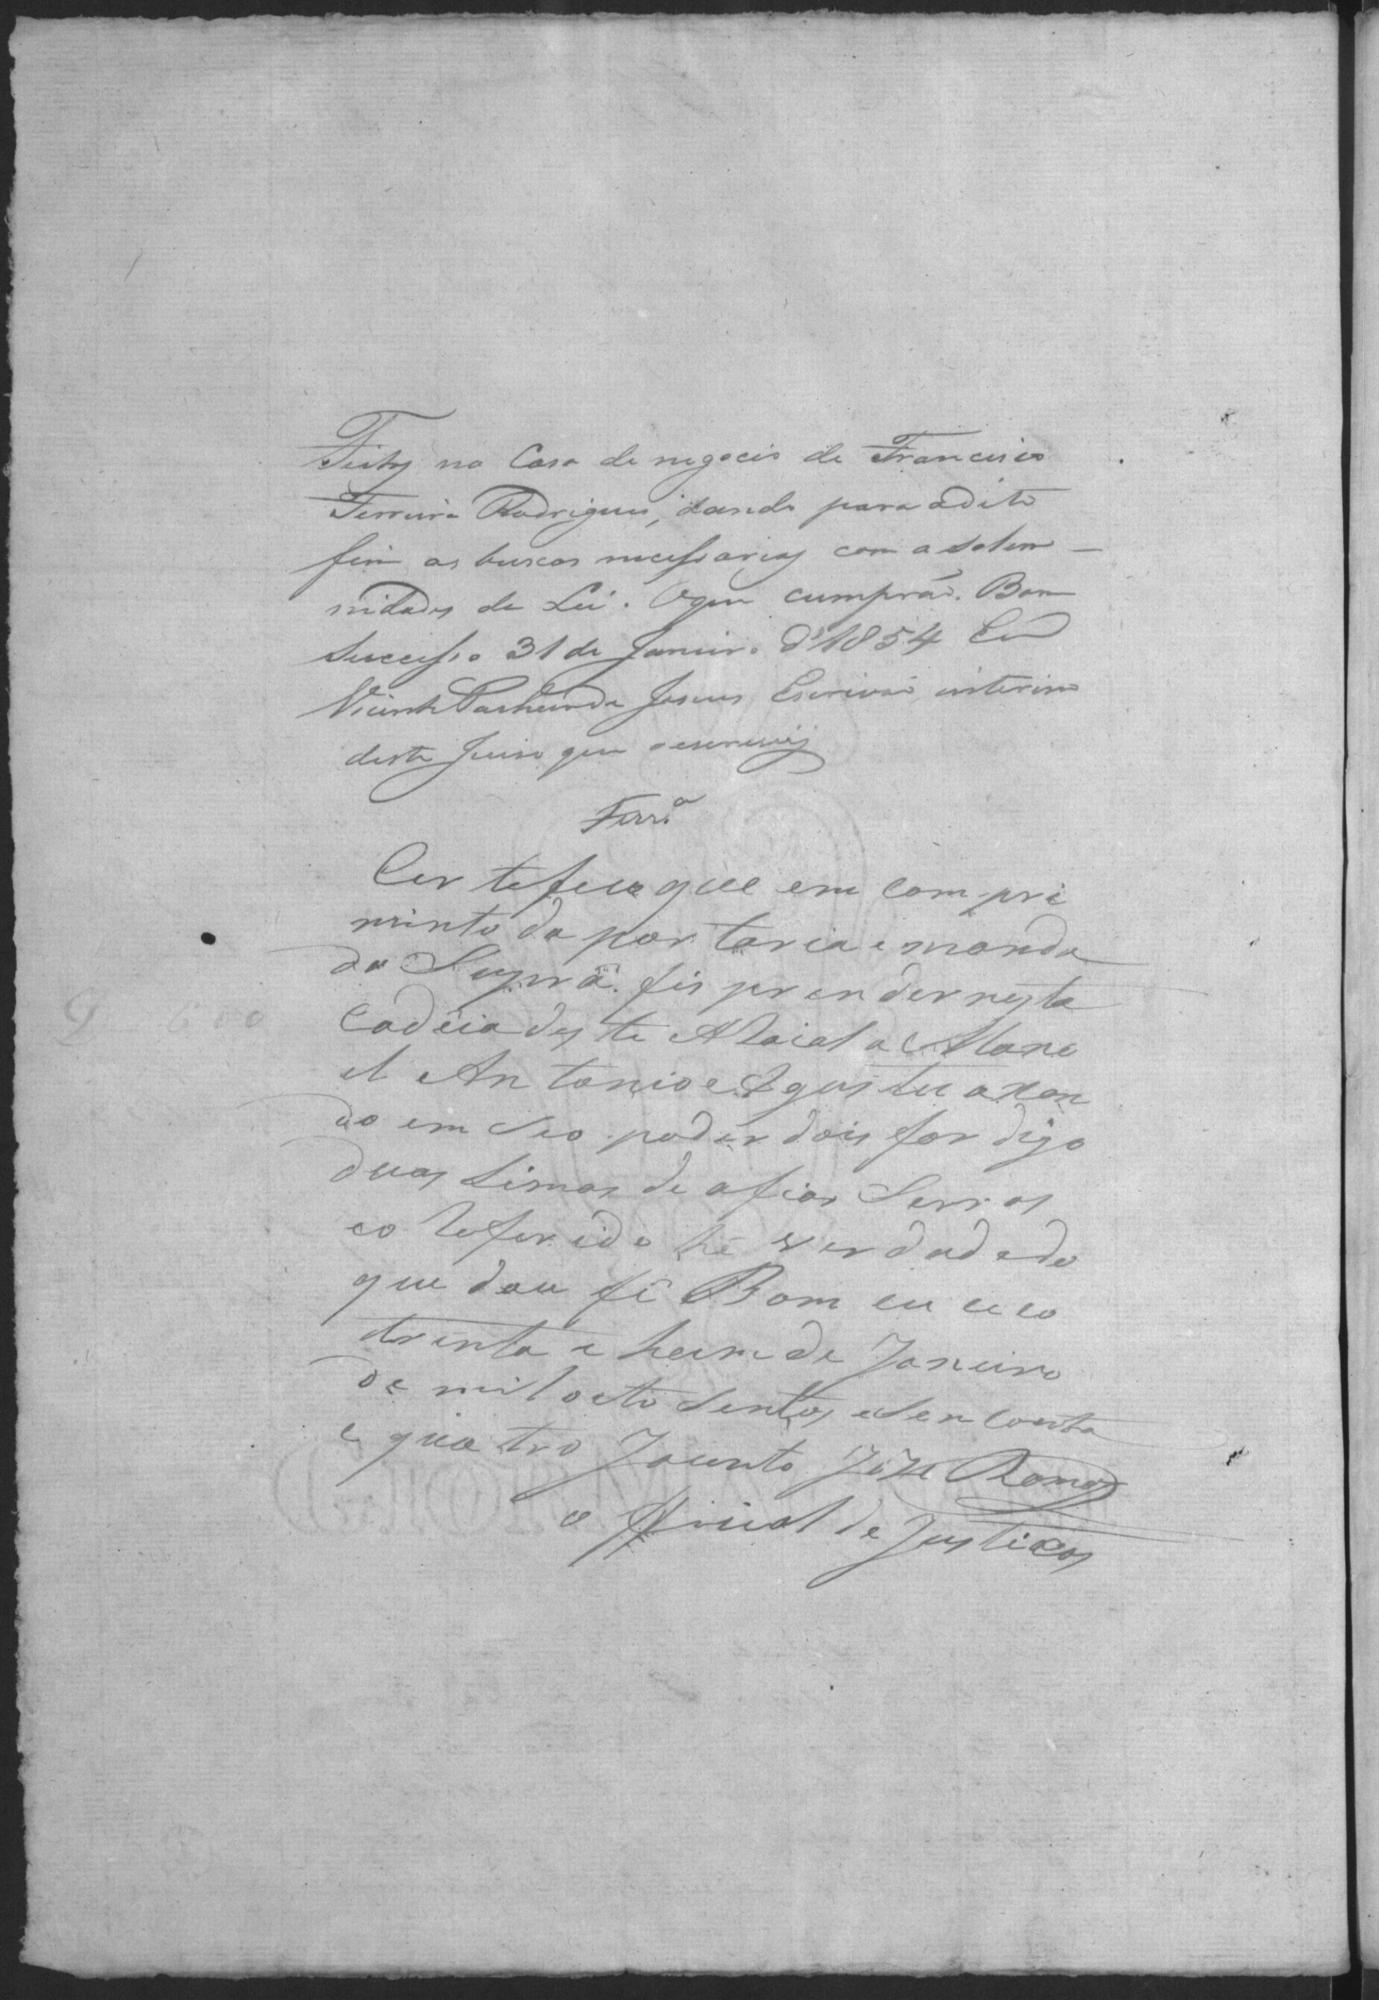 Feitos na Casa de negocio de Francisco
Ferreira Rodrigues, dando para adito
fim as buscas necessarias com a solem-
nidades da Lei. Oque cumprão. Bom
Successo 31 de Janeiro d'1854 Eu
Vicente de Jesus Escrivão interino
deste Juiso que o escrevy
Ferr.ª
Certefico que em compri
mento da portaria e manda
do Supra fis prender nesta
Cadeia deste ARaial a Mano
el Antonio e Agusto axan
do em seo poder dois for digo
duas Limas de afiar Serras
eo Referido hé verdadedo
que dou fé Bom
trinta e heum de Janeiro
de mil oito Sentos e Sencoenta
e quatro Jacinto Jôze Ramos
o Oficial de Justicas
600